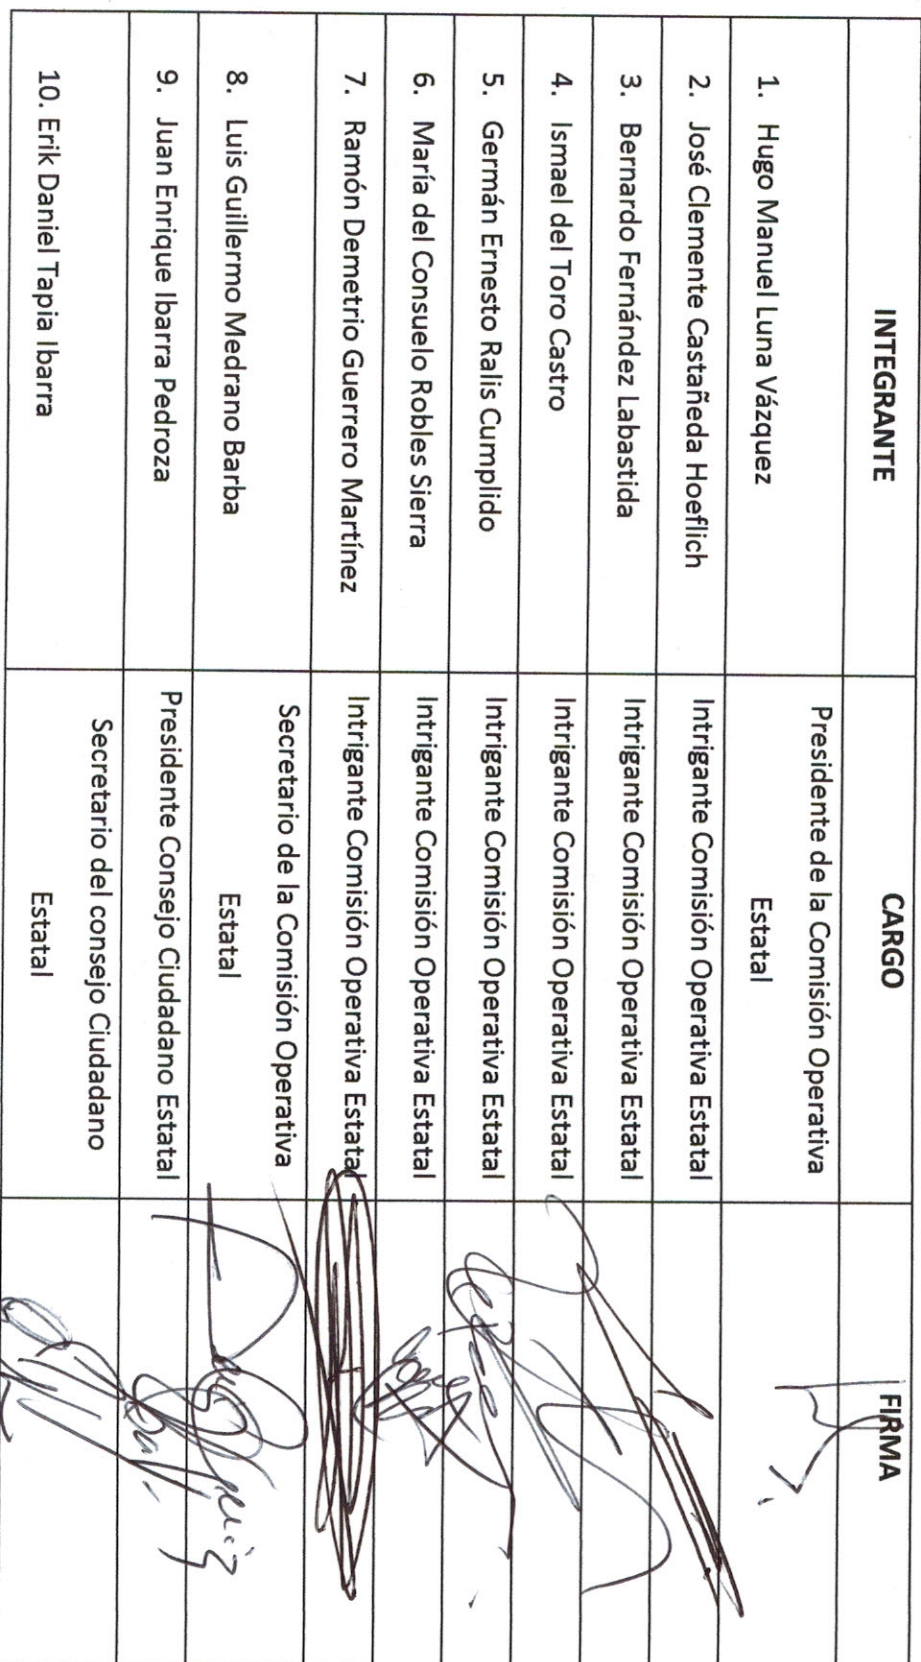 INTEGRANTE CARGO FIRMA
1. Hugo Manuel Luna Vázquez Presidente de la Comisión Operativa
Estatal
2. José Clemente Castañeda Hoeflich Intrigante Comisión Operativa Estatal
3. Bernardo Fernández Labastida Intrigante Comisión Operativa Estatal
4. Ismael del Toro Castro Intrigante Comisión Operativa Estatal
5. Germán Ernesto Ralis Cumplido Intrigante Comisión Operativa Estatal
6. María del Consuelo Robles Sierra Intrigante Comisión Operativa Estatal
7. Ramón Demetrio Guerrero Martínez Intrigante Comisión Operativa Estatal
8. Luis Guillermo Medrano Barba Secretario de la Comisión Operativa
Estatal
9. Juan Enrique Ibarra Pedroza Presidente Consejo Ciudadano Estatal
10. Erik Daniel Tapia Ibarra Secretario del consejo Ciudadano
Estatal